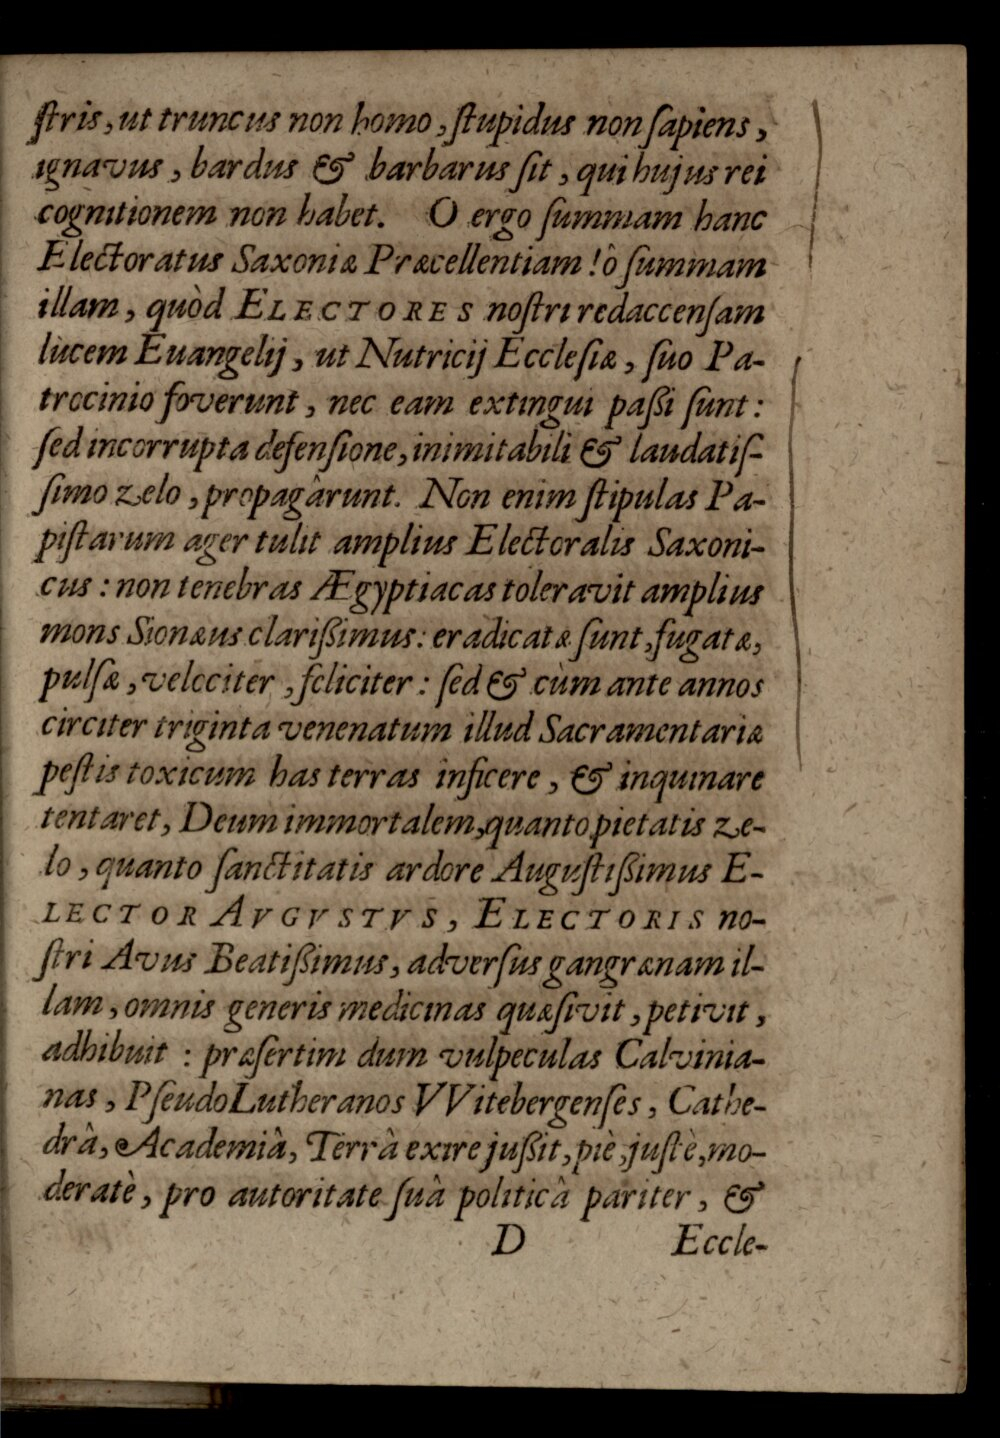 ſtris, ut truncus non homo, ſtupidus non ſapiens,
ignavus, bardus & barbarus ſit, qui hujus rei
cognitionem non habet. O ergo ſummam hanc
Electoratus Saxoniæ Præcellentiam! ô ſummam
illam, quòd ELECTORES noſtri redaccenſam
lucem Euangelij, ut Nutricij Eccleſiæ, ſuo Pa-
trocinio foverunt, nec eam extingui paßi ſunt:
ſed incorrupta defenſione, inimitabili & laudatiſ-
ſimo zelo, propagârunt. Non enim ſtipulas Pa-
piſtarum ager tulit amplius Electoralis Saxoni-
cus: non tenebras Ægyptiacas toleravit amplius
mons Sionæus clarißimus: eradicatæ ſunt, fugatæ,
pulſæ, velociter, feliciter: ſed & cùm ante annos
circiter triginta venenatum illud Sacramentariæ
peſtis toxicum has terras inficere, & inquinare
tentaret, Deum immortalem, quanto pietatis ze-
lo, quanto ſanctitatis ardore Auguſtißimus E-
LECTOR AVGVSTVS, ELECTORIS no-
ſtri Avus Beatißimus, adverſus gangrænam il-
lam, omnis generis medicinas quæſivit, petivit,
adhibuit: præſertim dum vulpeculas Calvinia-
nas, PſeudoLutheranos VVitebergenſes, Cathe-
drâ, Academiâ, Terrâ exire jußit, piè, juſtè, mo-
deratè, pro autoritate ſuâ politicâ pariter, &
D Eccle-